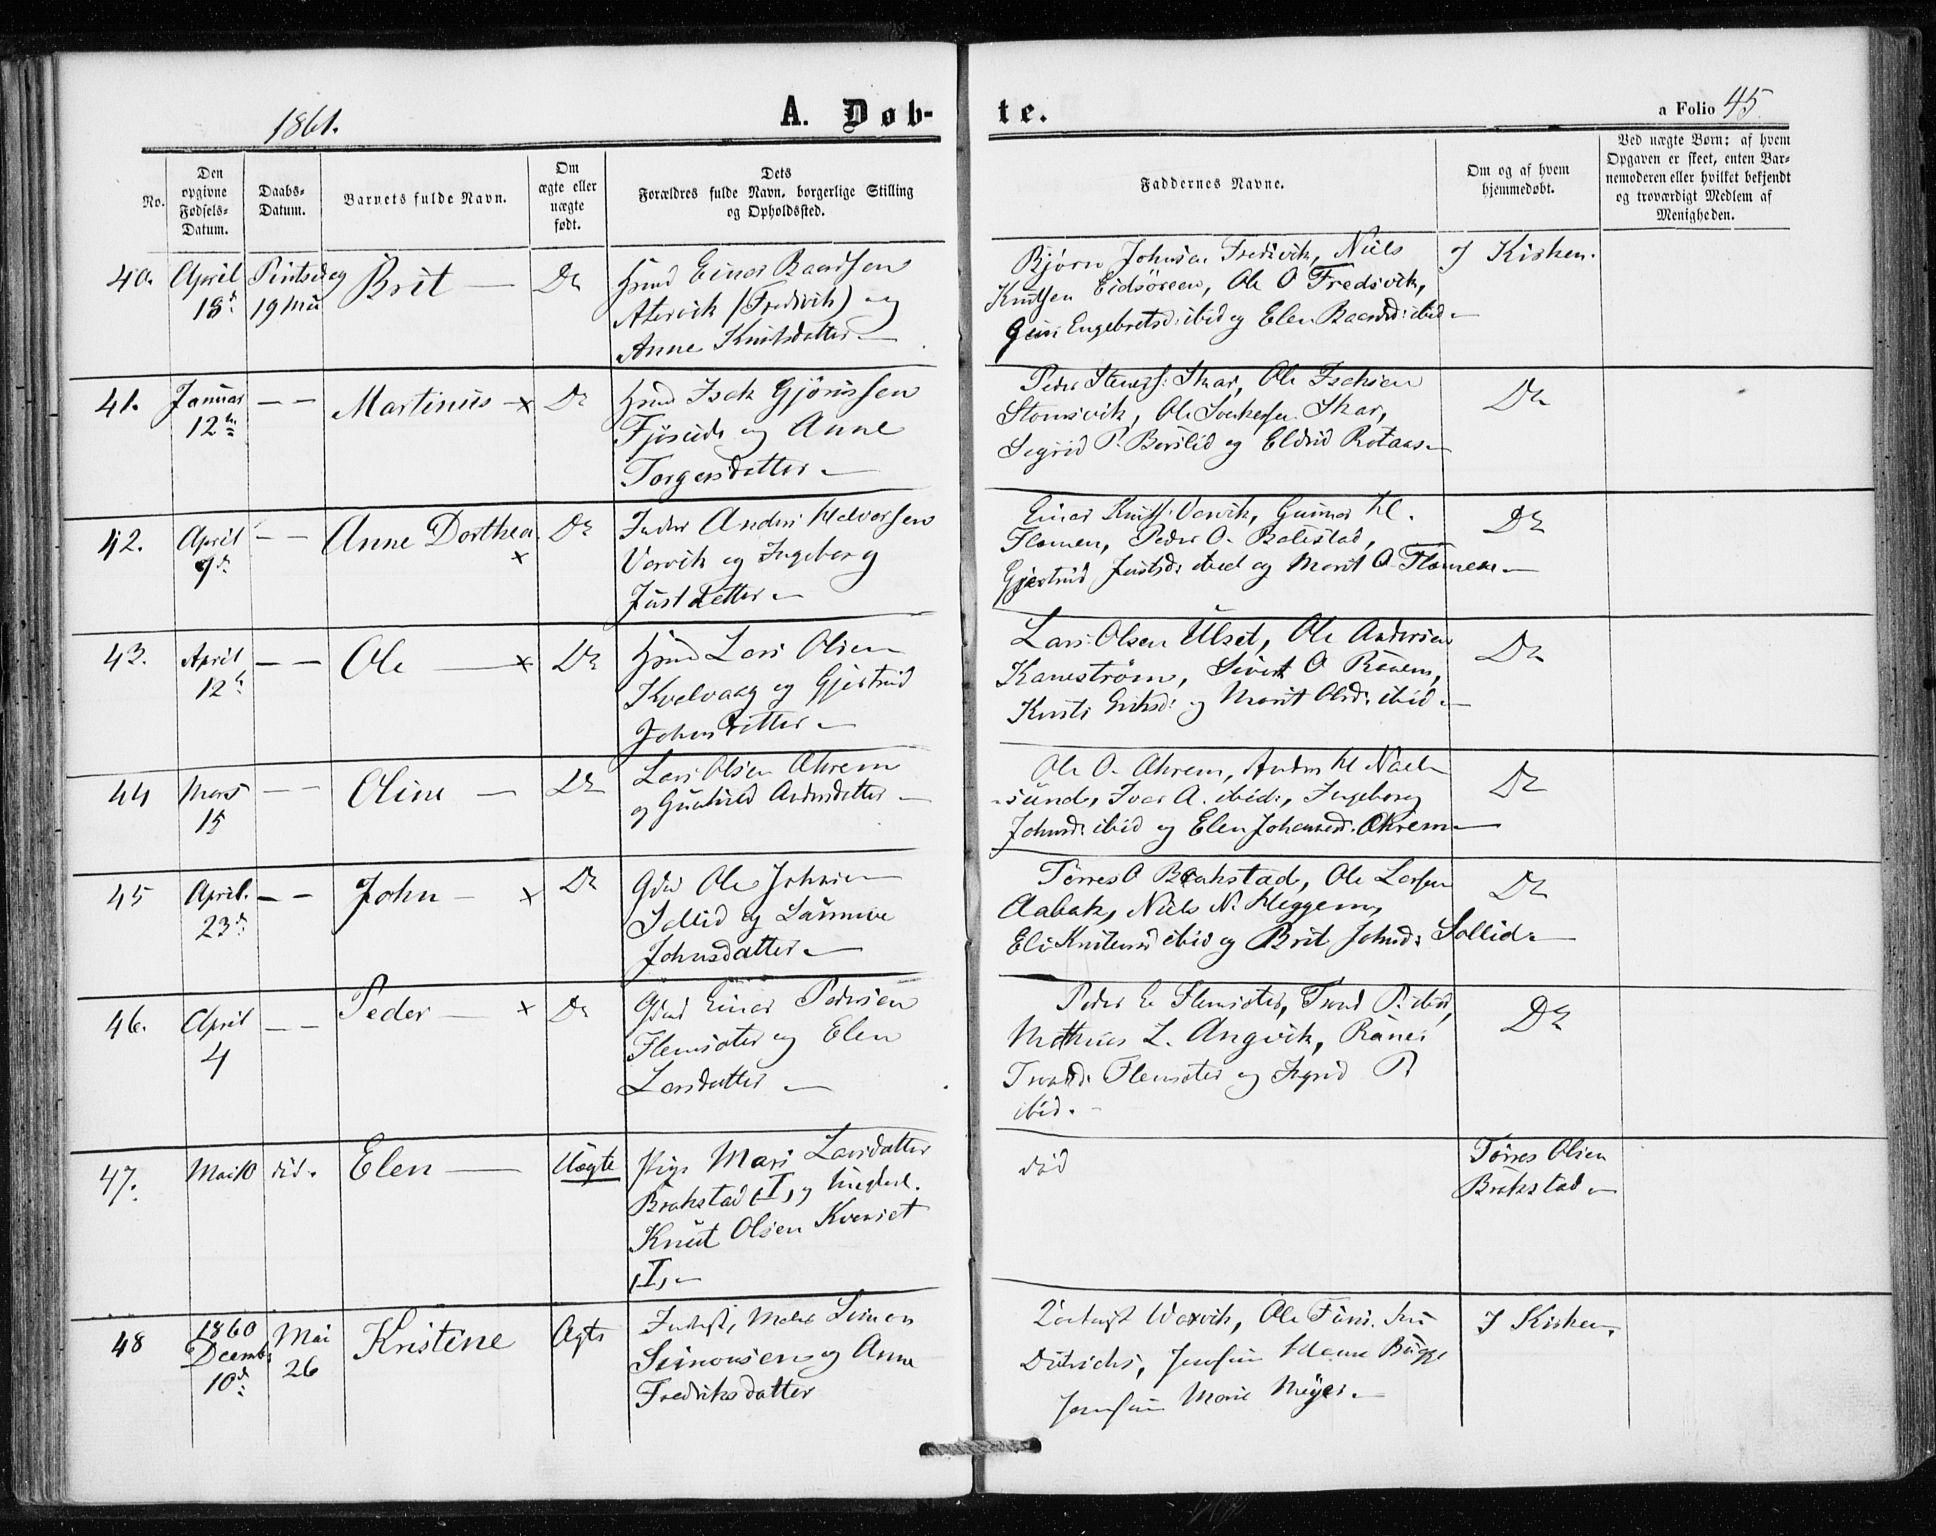 1861.
A. Døb-
te.
a Folio 45
No.
Den opgivne Fødsels-Datum.
Daabs-Datum.
Barnets fulde Navn.
Om ægte eller uægte født.
Dets Forældres fulde Navn, borgerlige Stilling og Opholdssted.
Faddernes Navne.
Om og af hvem hjemmedøbt.
Ved uægte Børn: af hvem Opgaven er skeet, enten Barnemoderen eller hvilket bekjendt og troværdigt Medlem af Menigheden.
40. April 18d Pintsedag 19 Mai Brit — Do
Hsmd Einar Baardsen
(Fredsvik) og
Anne Knutsdatter —
Bjørn Johnsen Fredsvik, Niels
Knutsen Eidsøreen, Ole O Fredsvik,
Guri Engebretsd: ibid og Elen Baardsd: ibid —
I Kirken.
41. Januar 12te — — Martinus — x Do
Hsmd Isak Gjørissen
og Anne
Torgersdatter —
Peder Skar, Ole
Ole Skar,
Sigrid P. og Eldrid Rotaas —
Do
42. April 9d — — Anne Dorthea x Do
Anders Halvorsen
Vorvik og Ingeborg
Just Datter —
Einar Knuts: Vorvik, Gunnar Hl.
Flemen, Peder O. Bolestad,
Gjertrud Justsd: ibid og Marit O. Flemen —
Do
43. April 12te — — Ole — x Do
Hsmd Lars Olsen
Kvalvaag og Gjertrud
Johns Datter —
Lars Olsen Ulset, Ole Andersen
Kanestrøm, Sivert O
og Marit Olsd: ibid —
Do
44 Mars 15 — — Oline — Do
Lars Olsen Ohrem
og Gunhild Andersdatter —
Ole O. Ohrem, Anders Hl Naal-
sund, Iver A. ibid:, Ingeborg
Johnsd: ibid og Elen Johannesd: Ohrem —
Do
45 April. 23d — — John — x Do
Gdbr Ole Johnsen
Sollid og
Johnsdatter —
Torres O Brakstad, Ole Larsen
Aabak, Niels N. Heggem,
Eli ibid og Brit Johnsd: Sollid —
Do
46. April 4 — — Peder — x Do
Gdbr Einar Pedersen
Flemsæter og Elen
Larsdatter —
Peder E Flemsæter, Trond P. ibid,
Mathias L. Angvik,
Flemsæter og Ingrid P
ibid. —
Do
47. Mai 10 død. Elen — Uægte
Pige Mari Larsdatter
Brakstad (I, og Ungkarl.
Knut Olsen Kvernet
(I, —
død
Torres Olsen
Brakstad —
48 1860 Decemb: 10d Mai 26 Kristine Ægte
Maler Simon
Simonsen og Anne
Fredriksdatter
Vorvik, Ole
Jomfru Bugge
Jomfru Marie Meyer. —
I Kirken.